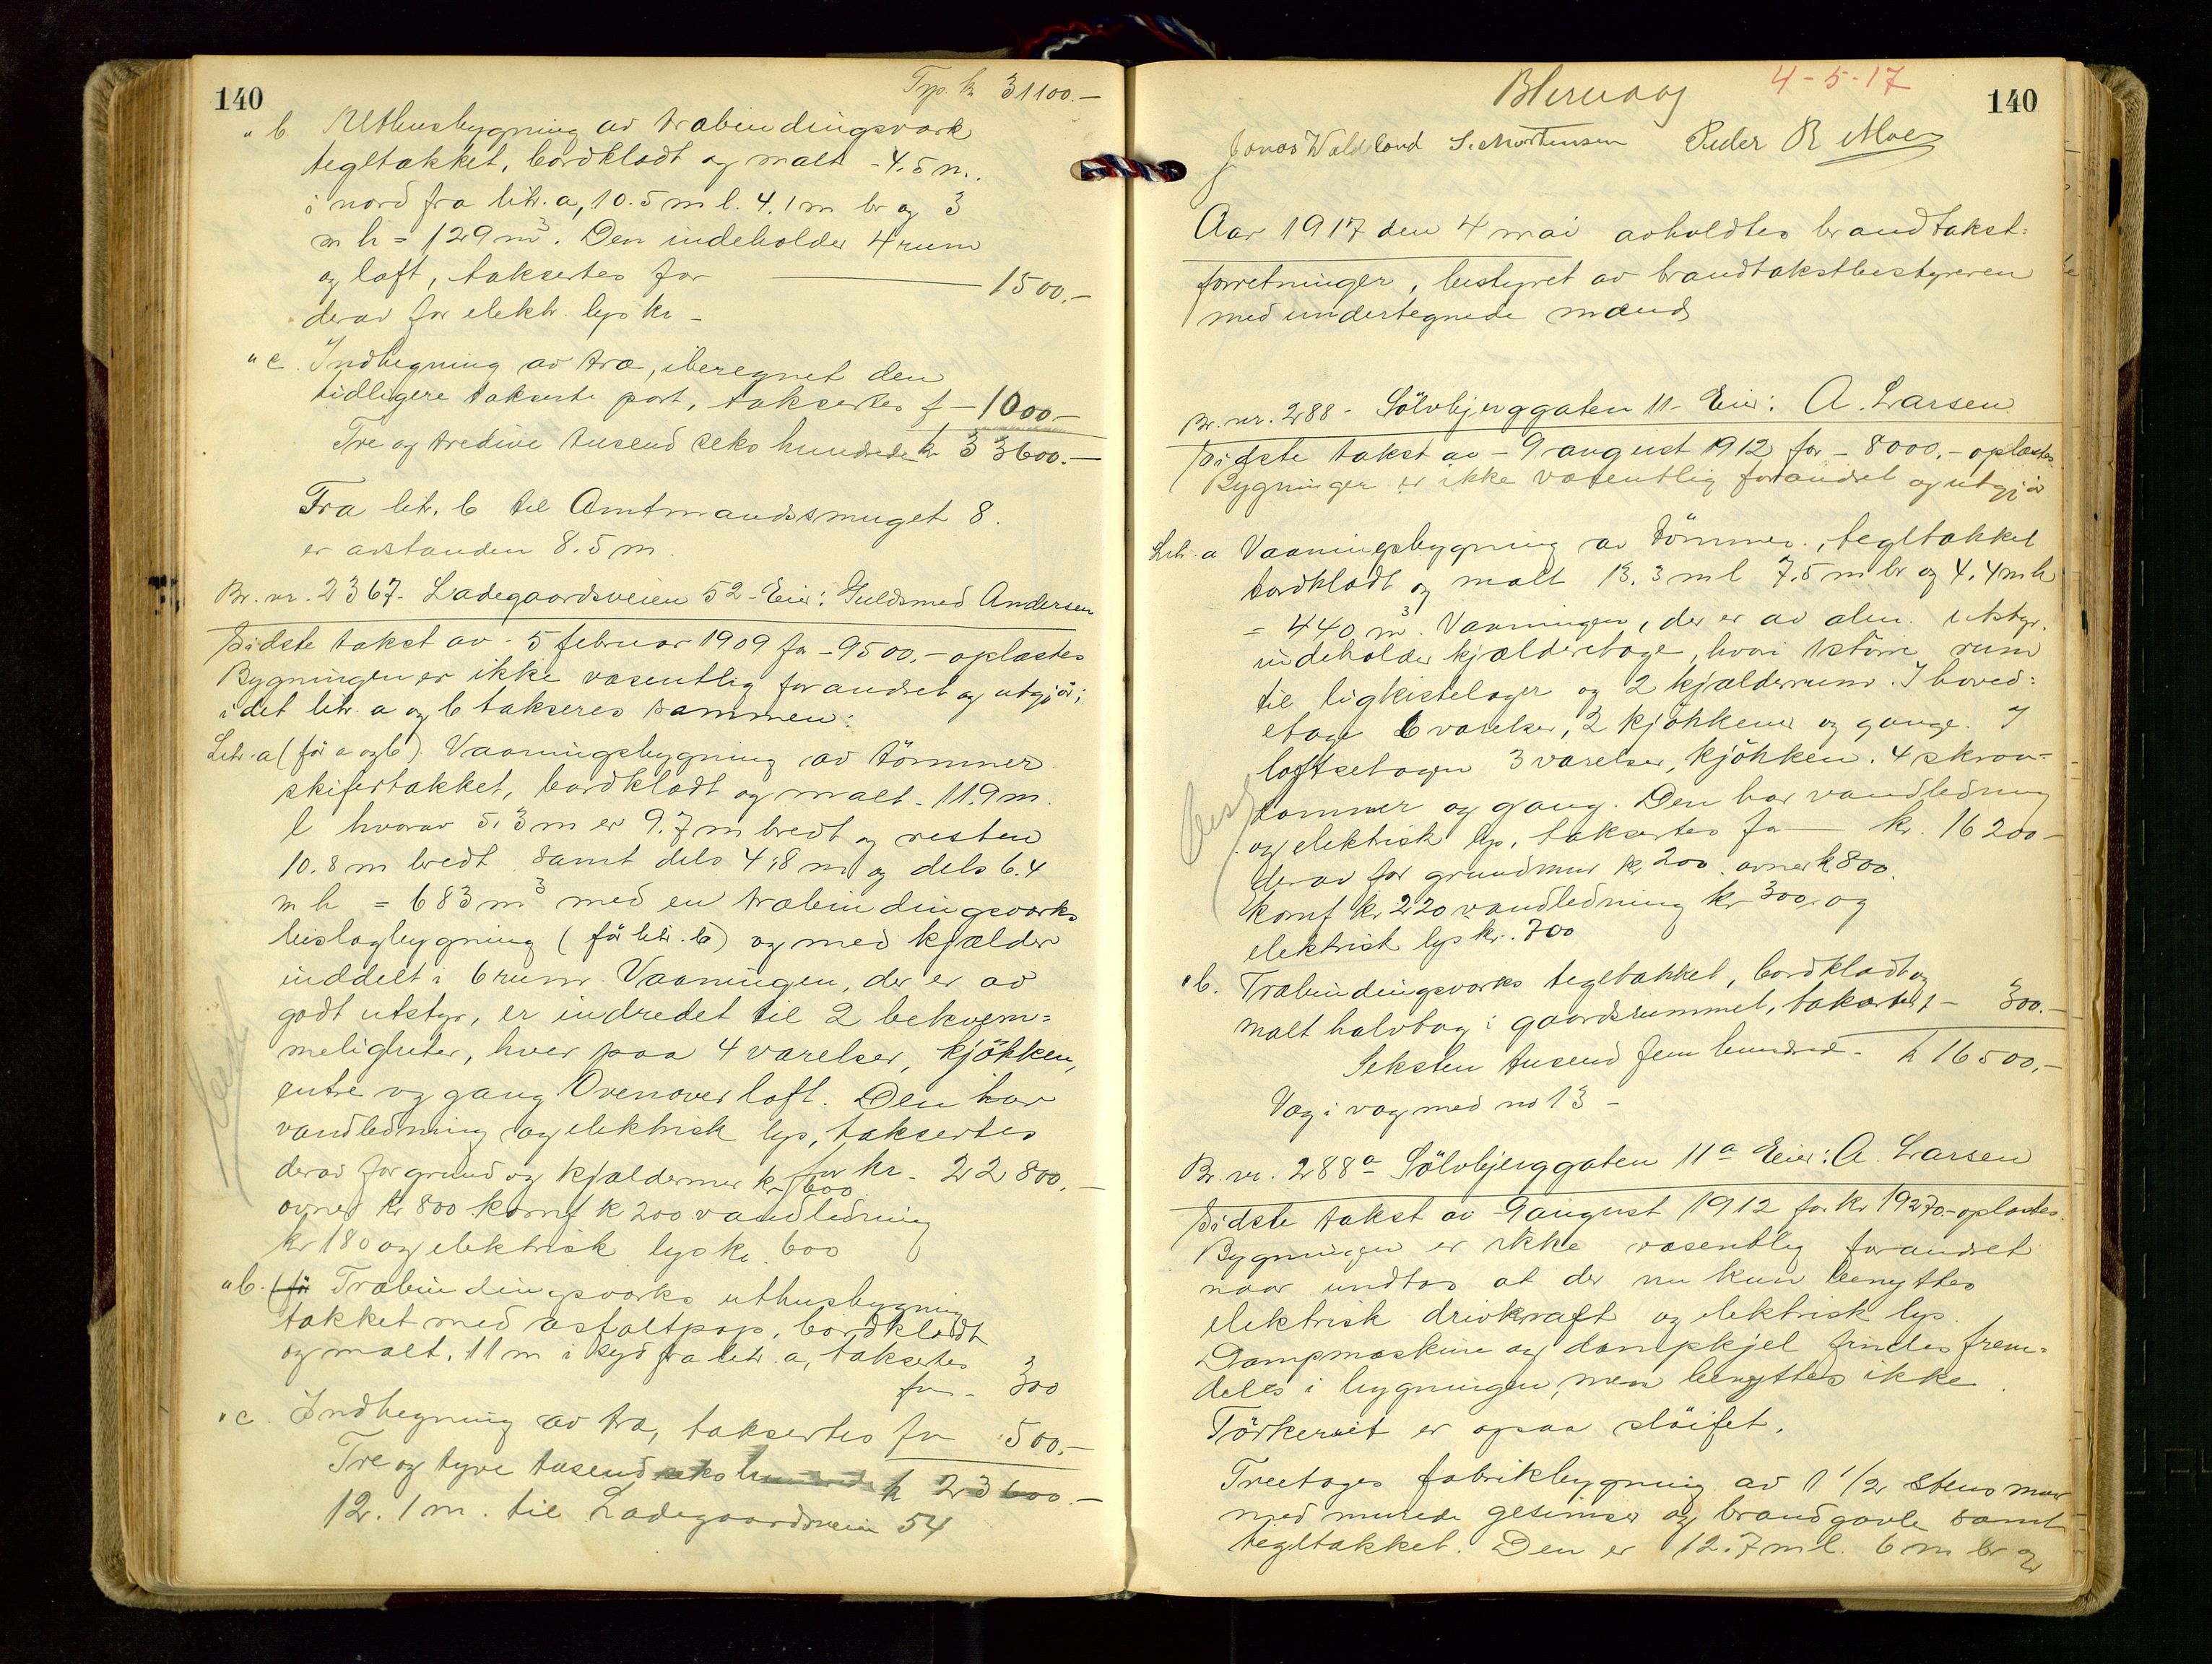 140
Trp. kr 31100.-
" b Uthusbygning av træbindingsverk
tegltækket, bordklædt og malt - 4.5 m.
i nord fra litr. a, 10.5 m l. 4.1 m br og 3
m h = 129 m³. Den indeholder 4 rum
og loft, taksertes for — 1500.-
derav for elektr. lys kr -
" c. Indhegning av træ, iberegnet den
tidligere takserte port, taksertes f - 1000-
Tre og tredive tusend seks hundrede kr 33600.-
Fra litr. b til Amtmandssmuget 8.
er avstanden 8.5 m.
Br. nr. 2367. Ladegaardsveien 52 - Eier: Guldsmed Andersen
Sidste takst av - 5 februar 1909 for - 9500.- oplæstes
Bygningen er ikke væsentlig forandret og utgjør;
i det litr. a og b takseres sammen:
Litr. a (før a og b) Vaaningsbygning av tömmer
skifertækket, bordklædt og malt - 11.9 m.
l hvorav 5.3 m er 9.7 m bredt og resten
10.8 m bredt samt dels 4.8 m og dels 6.4
m h = 683 m³ med en træbindingsverks
bislagbygning (før litr. b) og med kjælder
inddelt i 6 rum. Vaaningen, der er av
godt utstyr, er indredet til 2 bekvem=
meligheter, hver paa 4 værelser, kjökken,
entre og gang Ovenover loft. Den har
vandledning og elektrisk lys, taksertes
for kr. 22800.-
derav for grund og kjældermur kr 600
ovner kr 800 komf k 200 vandledning
kr 180 og elektrisk lys kr. 600
" b. (før Træbindingsverks uthusbygning
tækket med asfaltpap, bordklædt
og malt. 11 m i syd fra litr. a, taksertes
for - 300
" c. Indhegning av træ, taksertes for 500.-
Tre og tyve tusend seks hundrede kr 23600.-
12.1 m. til Ladegaardsveien 54
Blervaag 4-5-17
140
Jonas Waldeland S. Mortensen Peder R Moe
Aar 1917 den 4 mai avholdtes brandtakst=
forretninger, bestyret av brandtakstbestyreren
med undertegnede mænd
Br. nr. 288 - Sölvbjerggaten 11 - Eier: A. Larsen
Sidste takst av - 9 august 1912 for - 8000.- oplæstes.
Bygninger er ikke væsentlig forandret og utgjør
Litr. a Vaaningsbygning av tömmer, tegltækket
bordklædt og malt 13.3 m l 7.5 m br og 4.4 m h
= 440 m³. Vaaningen, der er av alm. utstyr.
indeholder kjælderetage, hvori 1 större rum
til ligkistelager og 2 kjælderrum. I hoved=
etage 6 værelser, 2 kjökkener og gange. I
loftsetagen 3 værelser, kjökken. 4 skraa=
kammer og gang. Den har vandledning
og elektrisk lys, taksertes for — kr. 16200-
derav for grundmur kr 200 ovner k 800.
komf kr 220 vandledning kr 300. og
elektrisk lys kr. 700
" b. Træbindingsverks tegltækket, bordklædt og
malt halvtag i gaardsrummet, taksertes f - 300.-
Seksten tusend fem hundred - k 16500.-
Væg i væg med no 13 -
Br. nr. 288a Sölvbjerggaten 11a Eier: A. Larsen
Sidste takst av - 9 august 1912 for kr 19270.- oplæstes.
Bygningen er ikke væsentlig forandret
naar undtas at der nu kun benyttes
elektrisk drivkraft og elektrisk lys.
Dampmaskine og dampkjel findes frem=
deles i bygningen, men benyttes ikke.
Törkeriet er ogsaa slöifet.
Treetages fabrikbygning av 1 1/2 stens mur
med murede gesimser og brandgavle samt
tegltækket. Den er 12.7 m l. 6 m br og